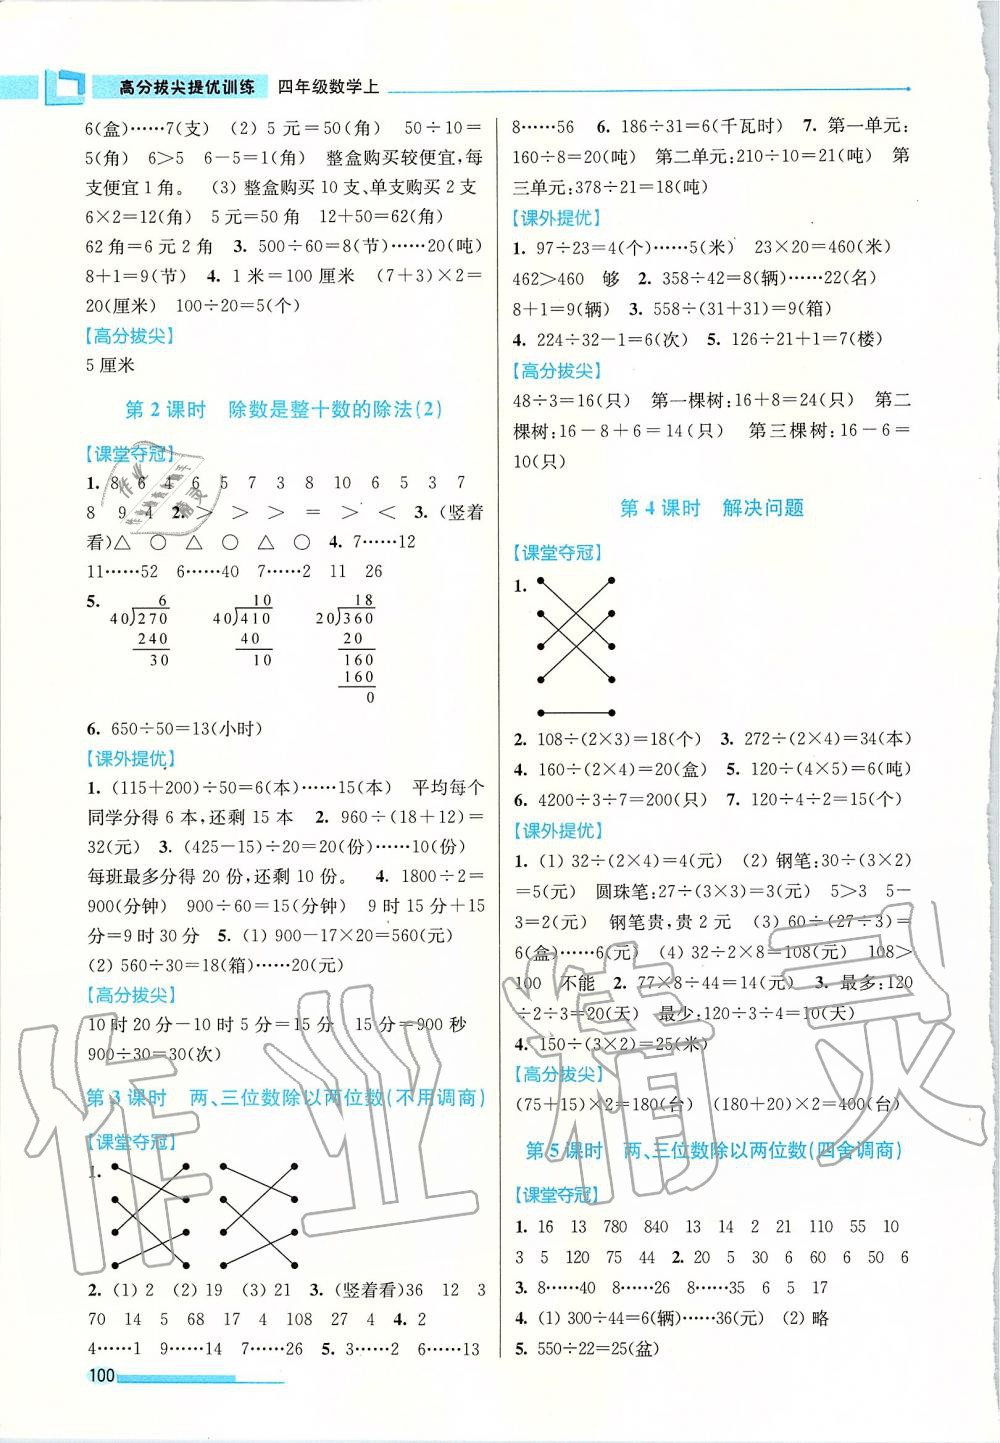 高分拔尖提优训练 四年级数学上
6(盒)……7(支) (2) 5 元=50(角) 50÷10=
5(角) 6>5 6-5=1(角) 整盒购买较便宜,每
支便宜 1 角。 (3) 整盒购买 10 支、单支购买 2 支
6×2=12(角) 5 元=50 角 12+50=62(角)
62 角=6 元 2 角 3. 500÷60=8(节)……20(吨)
8+1=9(节) 4. 1 米=100 厘米 (7+3)×2=
20(厘米) 100÷20=5(个)
【高分拔尖】
5 厘米
第 2 课时 除数是整十数的除法(2)
【课堂夺冠】
1. 8 6 4 6 5 7 3 8 10 6 5 3 7
8 9 4 2. > > > = > < 3. (竖着
看)△ ○ △ △ △ ○ 4. 7……12
11……52 6……40 7……2 11 26
5.
6
40)270
240
30
10
40)410
40
10
18
20)360
20
160
160
0
6. 650÷50=13(小时)
【课外提优】
1. (115+200)÷50=6(本)……15(本) 平均每个
同学分得 6 本,还剩 15 本 2. 960÷(18+12)=
32(元) 3. (425-15)÷20=20(份)……10(份)
每班最多分得 20 份,还剩 10 份。 4. 1800÷2=
900(分钟) 900÷60=15(分钟) 9 时 15 分+15
分=9 时 30 分 5. (1) 900-17×20=560(元)
(2) 560÷30=18(箱)……20(元)
【高分拔尖】
10 时 20 分-10 时 5 分=15 分 15 分=900 秒
900÷30=30(次)
第 3 课时 两、三位数除以两位数(不用调商)
【课堂夺冠】
1.
2. (1) 2 (2) 19 (3) 21 3. (竖着看)36 12 3
70 14 5 68 17 108 27 4 4. 2
4……1 9……14 7……14 5. 3……2 6……13
100
8……56 6. 186÷31=6(千瓦时) 7. 第一单元:
160÷8=20(吨) 第二单元:210÷10=21(吨) 第
三单元:378÷21=18(吨)
【课外提优】
1. 97÷23=4(个)……5(米) 23×20=460(米)
462>460 够 2. 358÷42=8(辆)……22(名)
8+1=9(辆) 3. 558÷(31+31)=9(箱)
4. 224÷32-1=6(次) 5. 126÷21+1=7(楼)
【高分拔尖】
48÷3=16(只) 第一棵树:16+8=24(只) 第二
棵树:16-8+6=14(只) 第三棵树:16-6=
10(只)
第 4 课时 解决问题
【课堂夺冠】
1.
2. 108÷(2×3)=18(个) 3. 272÷(2×4)=34(本)
4. 160÷(2×4)=20(盒) 5. 120÷(4×5)=6(吨)
6. 4200÷3÷7=200(只) 7. 120÷4÷2=15(个)
【课外提优】
1. (1) 32÷(2×4)=4(元) (2) 钢笔:30÷(3×2)
=5(元) 圆珠笔:27÷(3×3)=3(元) 5>3 5-
3=2(元) 钢笔贵,贵 2 元 (3) 60÷(27÷3)=
6(盒)……6(元) (4) 32÷2×8=108(元) 108>
100 不能 2. 77×8÷44=14(元) 3. 最多:120
÷2÷3=20(天) 最少:120÷3÷4=10(天)
4. 150÷(3×2)=25(米)
【高分拔尖】
(75+15)×2=180(台) (180+20)×2=400(台)
第 5 课时 两、三位数除以两位数(四舍调商)
【课堂夺冠】
1. 16 13 780 840 13 14 2 21 110 55 10
3 5 120 75 44 2. 20 5 30 6 60 50 6
3. 8……40 8……26 8……35 6 5 17
4. (1) 300÷44=6(辆)……36(元) (2) 略
5. 550÷22=25(盆)
作业精灵